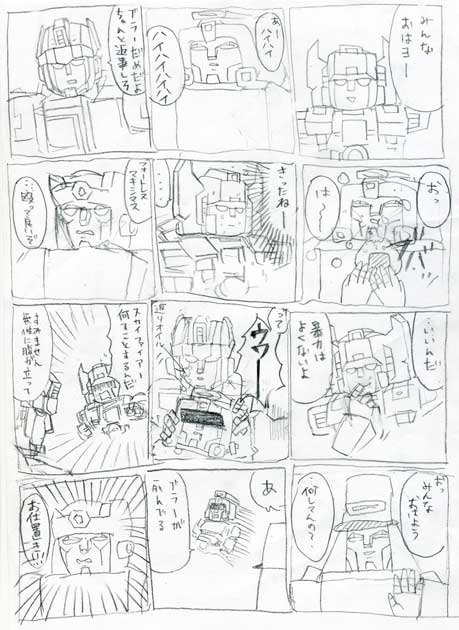 みんな
おはヨー
あー
ハイハイ
ハイハイハイハイ
ブラーだめだよ
ちゃんと返事しろ
おっ
は〜
ズバババ
きったねー
…
フォートレス
マキシマス
…殴って良いぞ
…いいんだ
暴力は
よくないよ
って
ウワーー
返りオイル
スカイファイアー
何すことするんだ
すみません
無性に腹が立つ
おっ
みんな
おはよう
…何してんの？…
あ
ブラーが
飛んでる
お仕置き!!!